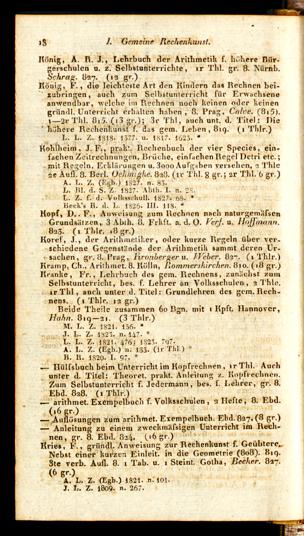 18 I. Gemeine Rechenkunst.
König, A. R. J., Lehrbuch der Arithmetik f. höhere Bür-
gerschulen u. z. Selbstunterrichte, 1r Thl. gr. 8. Nürnb.
Schrag. 827. (12 gr.)
König, F., die leichteste Art den Kindern das Rechnen bei-
zubringen, auch zum Selbstunterricht für Erwachsene
anwendbar, welche im Rechnen noch keinen oder keinen
gründl. Unterricht erhalten haben, 8. Prag, Calve. (815).
1—2r Thl. 815. (13 gr.); 3r Thl, auch unt. d. Titel: Die
höhere Rechenkunst f. das gem. Leben, 819. (1 Thlr.)
L. L. Z. 1818. 1377. u. 1817. 1625. *
Kohlheim, J. F., prakt. Rechenbuch der vier Species, ein-
fachen Zeitrechnungen, Brüche, einfachen Regel Detri etc.;
mit Regeln, Erklärungen u. 3000 Aufgaben versehen, 2 Thle
2e Aufl. 8. Berl. Oehmigke. 828. (1r Thl. 8 gr.; 2r Thl. 6 gr.)
A. L. Z. (Egb.) 1827. n. 83.
L. Bl. d. S. Z. 1827. Abth. I. n. 28.
L. Z. f. d. Volksschull. 1827. 68. *
Beck's R. d. L. 1825. III. 118. *
Kopf, D., F., Anweisung zum Rechnen nach naturgemäfsen
Grundsätzen, 3 Abth. 8. Frkft. a. d. O. Verf. u. Hoffmann.
825. (1 Thlr. 18 gr.)
Koref, J., der Arithmetiker, oder kurze Regeln über ver-
schiedene Gegenstände der Arithmetik sammt deren Ur-
sachen, gr. 8. Prag, Kronberger u. Weber. 827. (1 Thlr.)
Kramp, Ch., Arithmet. 8. Kölln, Rommerskirchen. 810. (18 gr.)
Kranke, Fr., Lehrbuch des gem. Rechnens, zunächst zum
Selbstunterricht, bes. f. Lehrer an Volksschulen, 2 Thle.
1r Thl., auch unter d. Titel: Grundlehren des gem. Rech-
nens. (1 Thlr. 12 gr.)
Beide Theile zusammen 60 Bgn. mit 1 Kpft. Hannover,
Hahn. 819—21. (3 Thlr.)
M. L. Z. 1821. 156. *
J. L. Z. 1823. n. 147. *
L. L. Z. 1821. 476; 1823. 797.
A. L. Z. (Egb.) n. 133. (1r Thl.) *
B. R. 1820. I. 97. *
— Hülfsbuch beim Unterricht im Kopfrechnen, 1r Thl. Auch
unter d. Titel: Theoret. prakt. Anleitung z. Kopfrechnen.
Zum Selbstunterricht f. Jedermann, bes. f. Lehrer, gr. 8.
Ebd. 828. (1 Thlr.)
— arithmet. Exempelbuch f. Volksschulen, 2 Hefte, 8. Ebd.
(16 gr.)
— Auflösungen zum arithmet. Exempelbuch. Ebd. 827. (8 gr.)
— Anleitung zu einem zweckmäfsigen Unterricht im Rech-
nen, gr. 8. Ebd. 824. (16 gr.)
Kries, F., gründl. Anweisung zur Rechenkunst f. Geübtere.
Nebst einer kurzen Einleit. in die Geometrie (808). 819.
Ste verb. Aufl. 8. 1 Tab. u. 1 Steint. Gotha, Becker. 827.
(6 gr.)
A. L. Z. (Egb.) 1821. n. 101.
J. L. Z. 1809. n. 267.